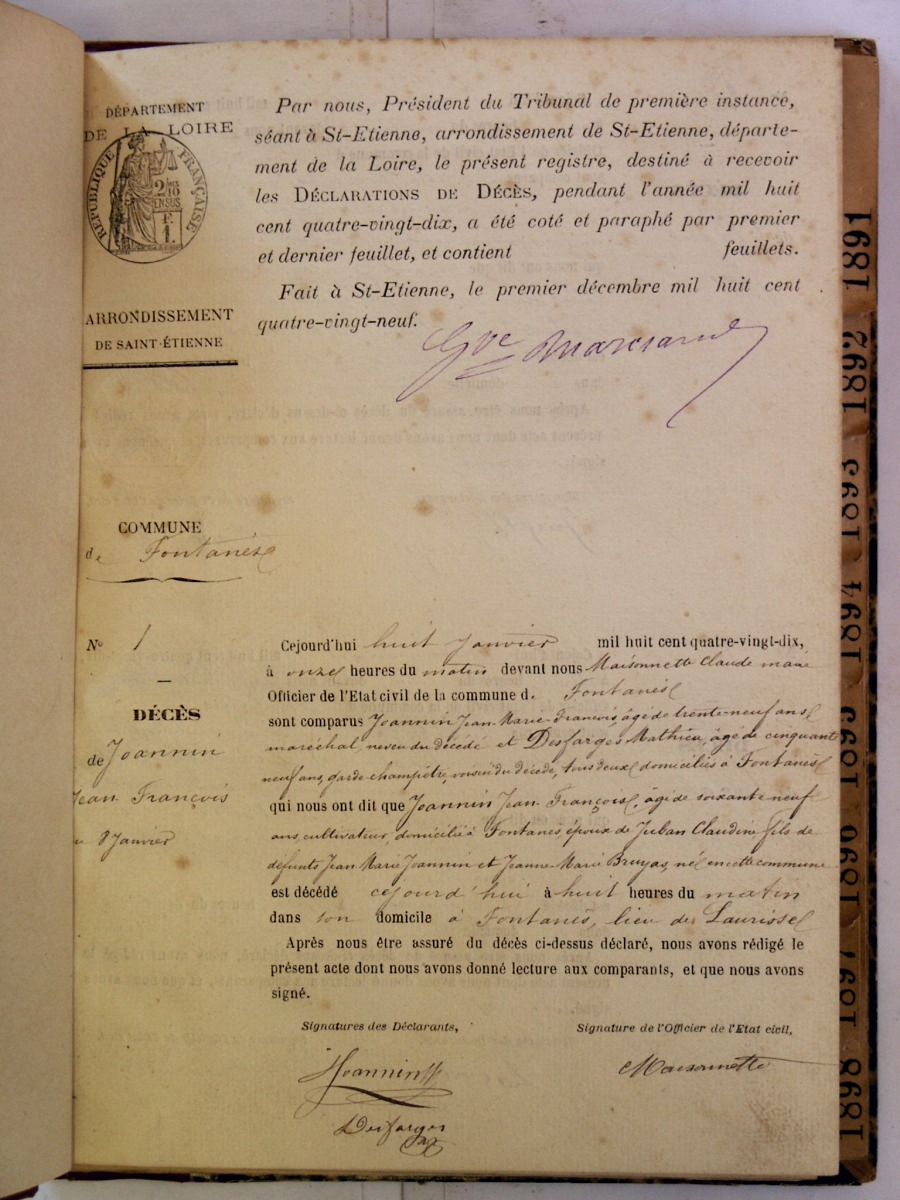 DÉPARTEMENT
DE LA LOIRE
RÉPUBLIQUE FRANÇAISE
2/10 EN SUS
ARRONDISSEMENT
DE SAINT-ÉTIENNE
Par nous, Président du Tribunal de première instance,
séant à St-Etienne, arrondissement de St-Etienne, départe-
ment de la Loire, le présent registre, destiné à recevoir
les DÉCLARATIONS DE DÉCÈS, pendant l'année mil huit
cent quatre-vingt-dix, a été coté et paraphé par premier
et dernier feuillet, et contient feuillets.
Fait à St-Etienne, le premier décembre mil huit cent
quatre-vingt-neuf.
COMMUNE
de Fontanès
N° 1
DÉCÈS
de Joannin
Jean François
8 Janvier
Cejourd'hui huit Janvier mil huit cent quatre-vingt-dix,
à onze heures du matin devant nous Maisonnette Claude marie
Officier de l'Etat civil de la commune d. Fontanès
sont comparus Joannin Jean-Marie-François, âgé de trente-neuf ans,
maréchal, neveu du décédé et Desfarges Mathieu, âgé de cinquante
neuf ans, garde-champêtre, voisin du décédé, tous deux domiciliés à Fontanès
qui nous ont dit que Joannin Jean-François, âgé de soixante-neuf
ans, cultivateur, domicilié à Fontanès, époux de Juban Claudine, fils de
défunts Jean Marie Joannin et Jeanne-Marie Bruyas, né en cette commune
est décédé cejourd'hui à huit heures du matin
dans son domicile à Fontanès, lieu de Laurisse
Après nous être assuré du décès ci-dessus déclaré, nous avons rédigé le
présent acte dont nous avons donné lecture aux comparants, et que nous avons
signé.
Signatures des Déclarants,
Signature de l'Officier de l'Etat civil,
Joannin
Maisonnette
Desfarges
1891 1892 1893 1894 1895 1896 1897 1898